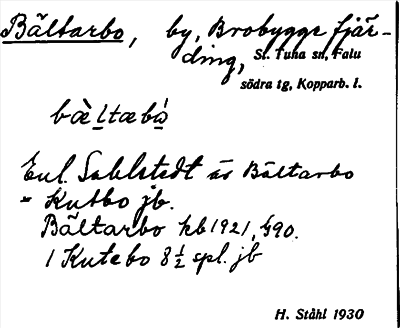 Bältarbo, by, Brobygge fjär-
ding, St. Tuna sn, Falu
södra tg, Kopparb. l.
bæ̀ltæbɷ́
Enl. Sahlstedt är Bältarbo
= Kutbo jb.
Bältarbo kb 1921, s 90.
1 Kutebo 8½ spl. jb
H. Ståhl 1930